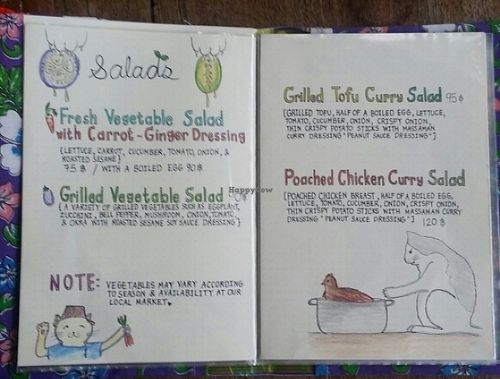 Salads
Fresh Vegetable Salad
with Carrot-Ginger Dressing
[LETTUCE, CARROT, CUCUMBER, TOMATO, ONION, &
ROASTED SESAME]
75฿ / WITH A BOILED EGG 90฿
Grilled Vegetable Salad
[A VARIETY OF GRILLED VEGETABLES SUCH AS EGGPLANT,
ZUCCHINI, BELL PEPPER, MUSHROOM, ONION, TOMATO,
& OKRA WITH ROASTED SESAME SOY SAUCE DRESSING]
NOTE: VEGETABLES MAY VARY ACCORDING
TO SEASON & AVAILABILITY AT OUR
LOCAL MARKET.
Grilled Tofu Curry Salad 95฿
[GRILLED TOFU, HALF OF A BOILED EGG, LETTUCE,
TOMATO, CUCUMBER, ONION, CRISPY ONION,
THIN CRISPY POTATO STICKS WITH MASSAMAN
CURRY DRESSING "PEANUT SAUCE DRESSING"]
Poached Chicken Curry Salad
[POACHED CHICKEN BREAST, HALF OF A BOILED EGG,
LETTUCE, TOMATO, CUCUMBER, ONION, CRISPY ONION,
THIN CRISPY POTATO STICKS WITH MASSAMAN CURRY
DRESSING "PEANUT SAUCE DRESSING"] 120฿
HappyCow